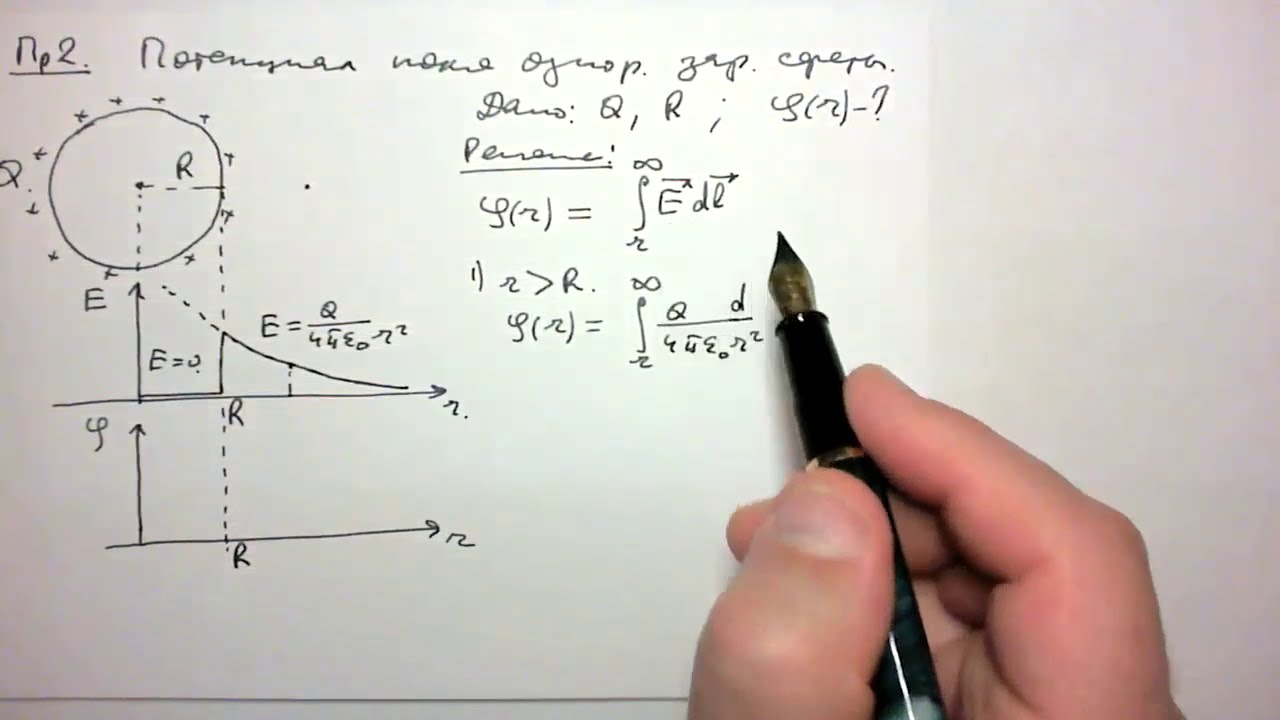 Пр2. Потенциал поля однор. зар. сферы.
Дано: Q, R ; φ(r)-?
Решение:
φ(r) = ∫_r^∞ E⃗ dl⃗
1) r > R.
φ(r) = ∫_r^∞ Q d / 4πε₀r²
Q.
R
E
E = Q / 4πε₀r²
E=0.
R
r.
φ
R
r